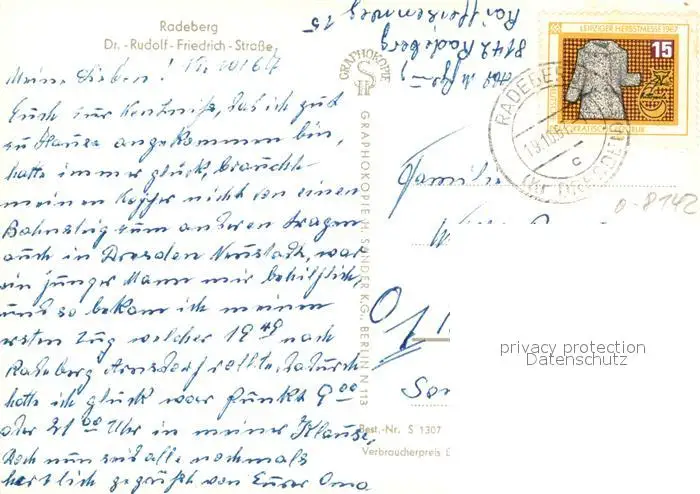 Radeberg
Dr.-Rudolf-Friedrich-Straße
Meine Lieben!
Euch zur Kentniß, das ich gut
zu Hause angekommen bin,
hatte immer glück, brauchte
meinen Koffer nicht von einen
Bahnsteig zum anderen tragen
auch in Dresden Neustadt, war
ein junger Mann mir behilflich,
und so bekam ich meinen
ersten Zug welcher 19 49 nach
Radeberg Arnsdorf rollte, dadurch
hatte ich glück war Punkt 9 00
oder 21 00 Uhr in meiner Klause,
Doch nun seit alle nochmals
herzlich gegrüßt von Eurer Oma
15
8142 Radeberg
GRAPHOKOPIE
GRAPHOKOPIE H. SANDER K.G., BERLIN N 113
LEIPZIGER HERBSTMESSE 1967
15
RADEBERG
c
Familie
o-8142
Best.-Nr. S 1307
Verbraucherpreis
privacy protection
Datenschutz